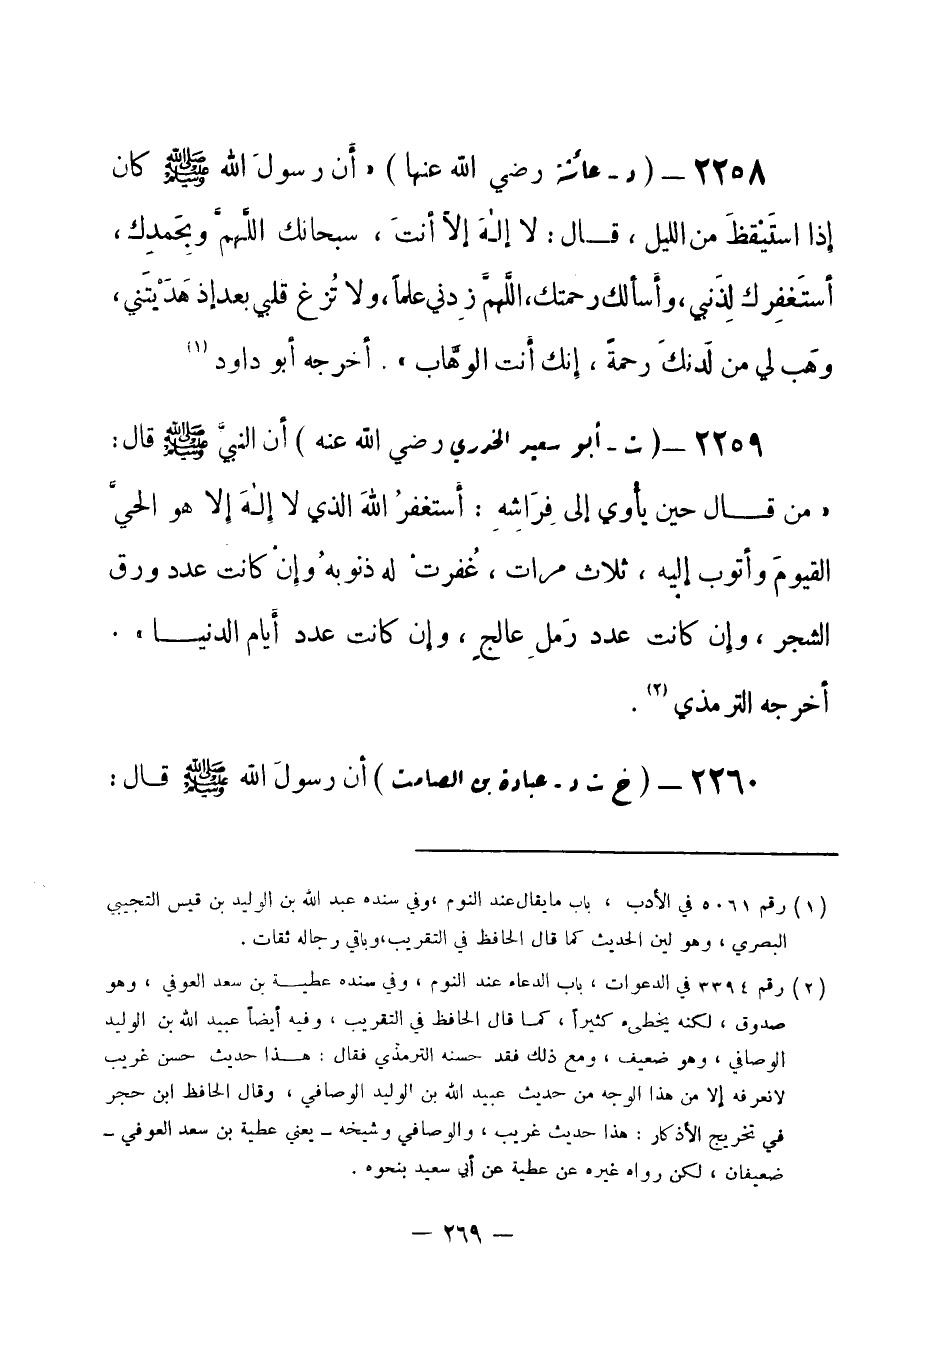 ٢٢٥٨ – ( د - عائشة رضي الله عنها ) « أن رسولَ الله ﷺ كان
إذا استَيْقظَ من الليل ، قـال : لا إِلهَ إلا أنتَ ، سبحانك اللَّهمَّ وبِحَمدِك ،
أستَغفِرك لِذَنبي ، وأسألك رحمتك ، اللَّهمَّ زِدني علماً ، ولا تُزِغ قلبي بعد إذ هَدَيْتَني ،
وهَب لي من لَدنكَ رحمةً ، إنك أنت الوهَّاب » . أخرجه أبو داود (١)
٢٢٥٩ – ( ت - أبو سعيد الخدري رضي الله عنه ) أن النبيَّ ﷺ قال :
« من قـال حين يأوي إلى فِرَاشهِ : أستغفرُ اللهَ الذي لا إِلهَ إلا هو الحيَّ
القيومَ وأتوب إليه ، ثلاث مرات ، غُفرتْ له ذنوبهُ وإنْ كانت عدد ورق
الشجر ، وإن كانت عدد رَملِ عالجٍ ، وإن كانت عدد أيام الدنيـا » .
أخرجه الترمذي (٢) .
٢٢٦٠ – ( خ ت د - عبادة بن الصامت ) أن رسولَ الله ﷺ قـال :
(١) رقم ٥٠٦١ في الأدب ، باب ما يقال عند النوم ، وفي سنده عبد الله بن الوليد بن قيس التجيبي
البصري ، وهو لين الحديث كما قال الحافظ في التقريب ، وباقي رجاله ثقات .
(٢) رقم ٣٣٩٤ في الدعوات ، باب الدعاء عند النوم ، وفي سنده عطيـة بن سعد العوفي ، وهو
صدوق ، لكنه يخطىء كثيراً ، كما قال الحافظ في التقريب ، وفيه أيضاً عبيد الله بن الوليد
الوصافي ، وهو ضعيف ، ومع ذلك فقد حسنه الترمذي فقال : هـذا حديث حسن غريب
لانعرفه إلا من هذا الوجه من حديث عبيد الله بن الوليد الوصافي ، وقال الحافظ ابن حجر
في تخريج الأذكار : هذا حديث غريب ، والوصافي وشيخه – يعني عطية بن سعد العوفي –
ضعيفان ، لكن رواه غيره عن عطية عن أبي سعيد بنحوه .
– ٢٦٩ –